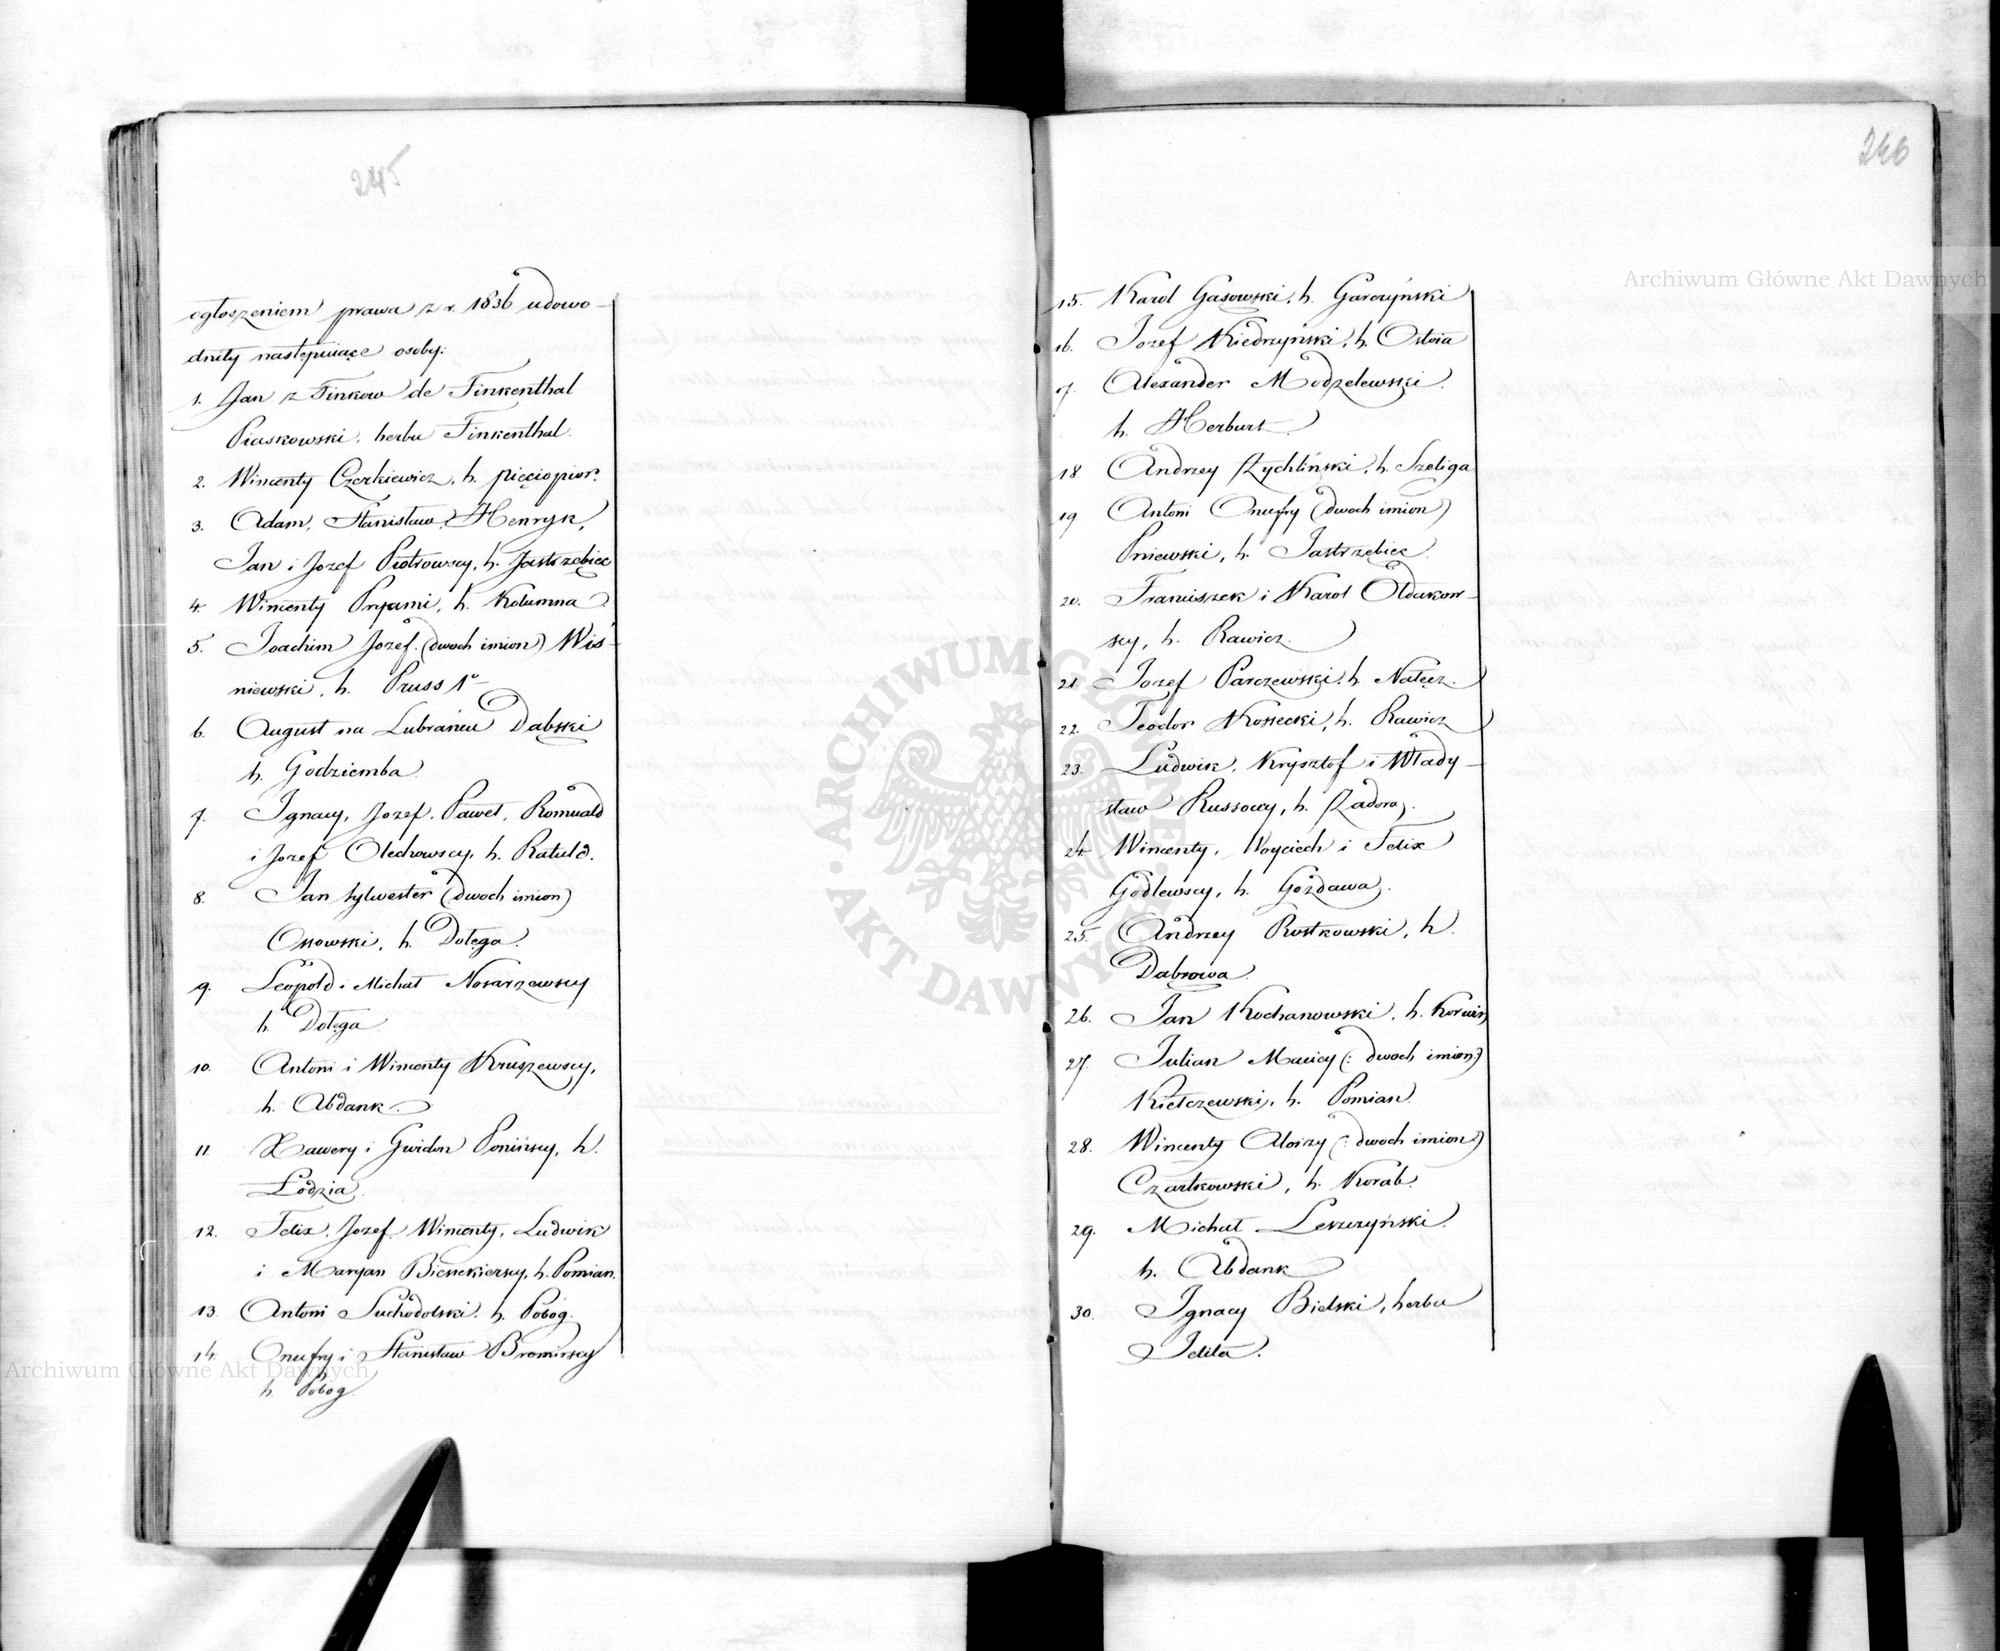 245
ogłoszeniem prawa z r. 1836 udowo-
dniły następuiące osoby:
1. Jan z Finkow de Finkenthal
Piaskowski, herbu Finkenthal.
2. Wincenty Czerkiewicz, h. pięciopior.
3. Adam, Stanisław, Henryk,
Jan i Jozef Piotrowscy, h. Jastrzębiec
4. Wincenty Pryami, h. Kolumna
5. Joachim Jozef (dwoch imion) Wiś-
niewski, h. Pruss 1º
6. August na Lubrańcu Dąbski
h. Godziemba
7. Ignacy, Jozef, Paweł, Romuald
i Jozef Olechowscy, h. Ratuld.
8. Jan Sylwester (dwoch imion)
Ossowski, h. Dołęga.
9. Leopold i Michał Nosarzewscy
h. Dołęga
10. Antoni i Wincenty Kruszewscy,
h. Abdank.
11. Xawery i Gwidon Ponińscy, h.
Łodzia.
12. Felix, Jozef, Wincenty, Ludwik
i Maryan Biesiekierscy, h. Pomian.
13. Antoni Suchodolski, h. Pobóg.
14. Onufry i Stanisław Bromirscy
h. Pobog.
246
15. Karol Gąsowski, h. Garczyński
16. Jozef Kiedrzyński, h. Ostoia
17. Alexander Modzelewski
h. Herburt
18 Andrzey Rychliński, h. Szeliga
19 Antoni Onufry (dwoch imion)
Pniewski, h. Jastrzębiec.
20. Franciszek i Karol Ołdakow-
scy, h. Rawicz.
21. Jozef Parczewski, h. Nałęcz.
22. Teodor Kossecki, h. Rawicz
23. Ludwik, Krysztof i Włady-
sław Russocy, h. Zadora.
24 Wincenty, Woyciech i Felix
Godlewscy, h. Gozdawa.
25. Andrzey Rostkowski, h.
Dąbrowa.
26. Jan Kochanowski, h. Korwin
27. Julian Maciey (: dwoch imion)
Kiełczewski, h. Pomian.
28. Wincenty Aloizy (: dwoch imion)
Czartkowski, h. Korab.
29. Michał Leszczyński.
h. Abdank
30. Ignacy Bielski, herbu
Jelita.
Archiwum Główne Akt Dawnych
Archiwum Główne Akt Dawnych
ARCHIWUM GŁÓWNE · AKT DAWNYCH ·